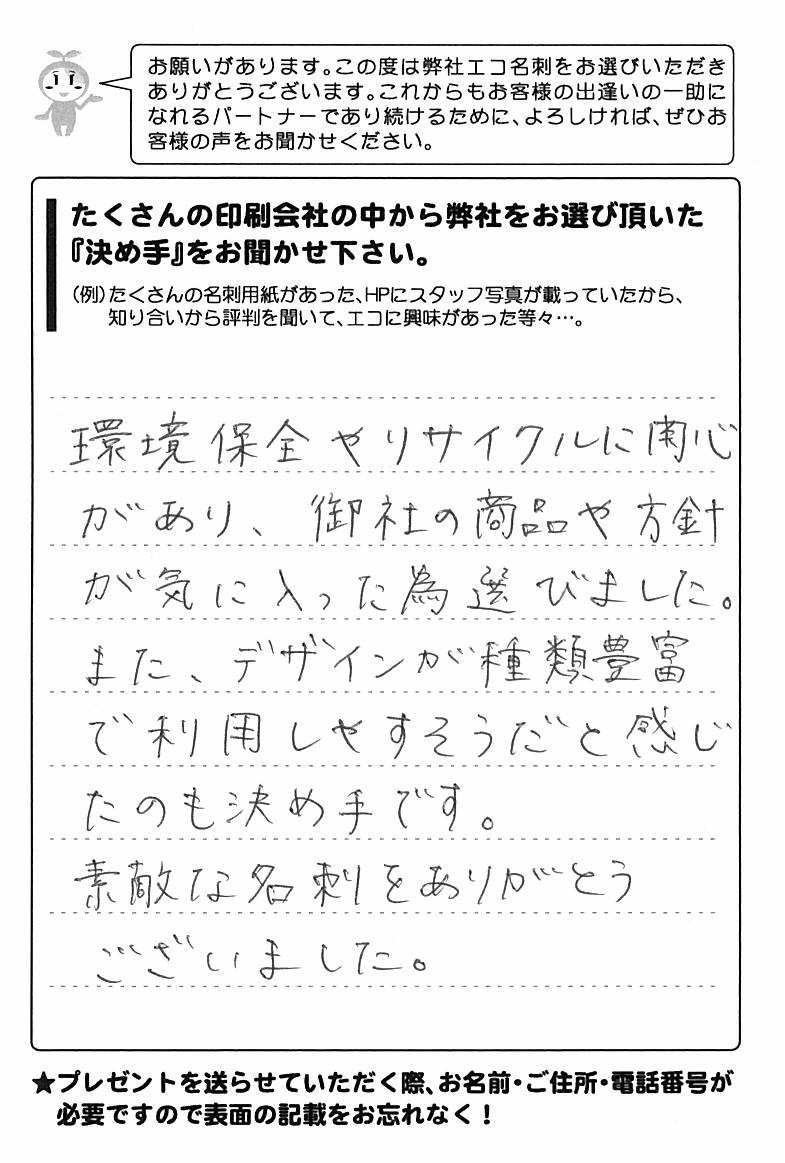 お願いがあります。この度は弊社エコ名刺をお選びいただき
ありがとうございます。これからもお客様の出逢いの一助に
なれるパートナーであり続けるために、よろしければ、ぜひお
客様の声をお聞かせください。
たくさんの印刷会社の中から弊社をお選び頂いた
『決め手』をお聞かせ下さい。
(例)たくさんの名刺用紙があった、HPにスタッフ写真が載っていたから、
知り合いから評判を聞いて、エコに興味があった等々…。
環境保全やリサイクルに関心
があり、御社の商品や方針
が気に入った為選びました。
また、デザインが種類豊富
で利用しやすそうだと感じ
たのも決め手です。
素敵な名刺をありがとう
ございました。
★プレゼントを送らせていただく際、お名前・ご住所・電話番号が
必要ですので表面の記載をお忘れなく！